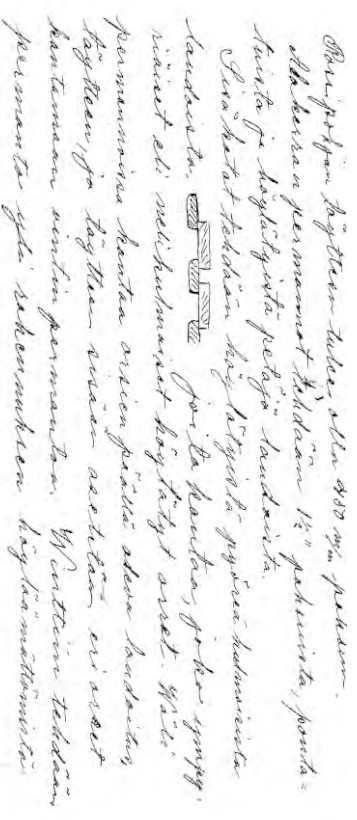 Rossipohjan täytteen tulee olla 250 m/m paksun.
Alakerran permannot tehdään 1½" paksuista, ponta=
tuista ja höylätyistä petäjä laudoista.
Sisäkatot tehdään höylätyistä pyöreä kulmaisista
laudoista, joita kantaa, joko ympy-
riäiset eli nelikulmaiset höylätyt orret. Väli
permannoissa kantaa orsien päällä oleva laudoitus,
täytteen, ja täytteen sisään asetetaan eri orret
kantamaan vintin permantoa. Winttiin tehdään,
permanto yli rakennuksen höyläämättömistä